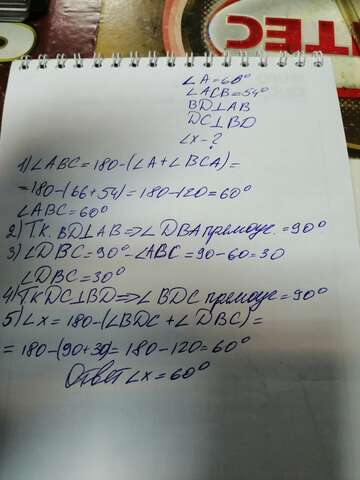 TEC
∠A=66°
∠ACB=54°
BD⊥AB
DC⊥BD
∠x-?
1) ∠ABC=180-(∠A+∠BCA)=
=180-(66+54)=180-120=60°
∠ABC=60°
2) Т.к. BD⊥AB=>∠DBA прямоуг=90°
3) ∠DBC=90°-∠ABC=90-60=30
∠DBC=30°
4) ТК DC⊥BD=>∠BDC прямоуг=90°
5) ∠x=180-(∠BDC+∠DBC)=
=180-(90+30)=180-120=60°
Ответ ∠x=60°